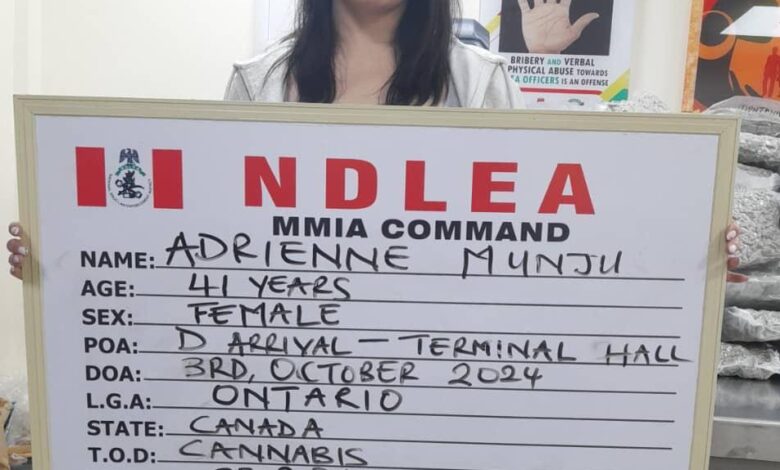 BRIBERY AND VERBAL
PHYSICAL ABUSE TOWARDS
OFFICERS IS AN OFFENSE
NDLEA
MMIA COMMAND
NAME: ADRIENNE MUNJU
AGE: 41 YEARS
SEX: FEMALE
POA: D ARRIVAL – TERMINAL HALL
DOA: 3RD, OCTOBER 2024
L.G.A: ONTARIO
STATE: CANADA
T.O.D: CANNABIS